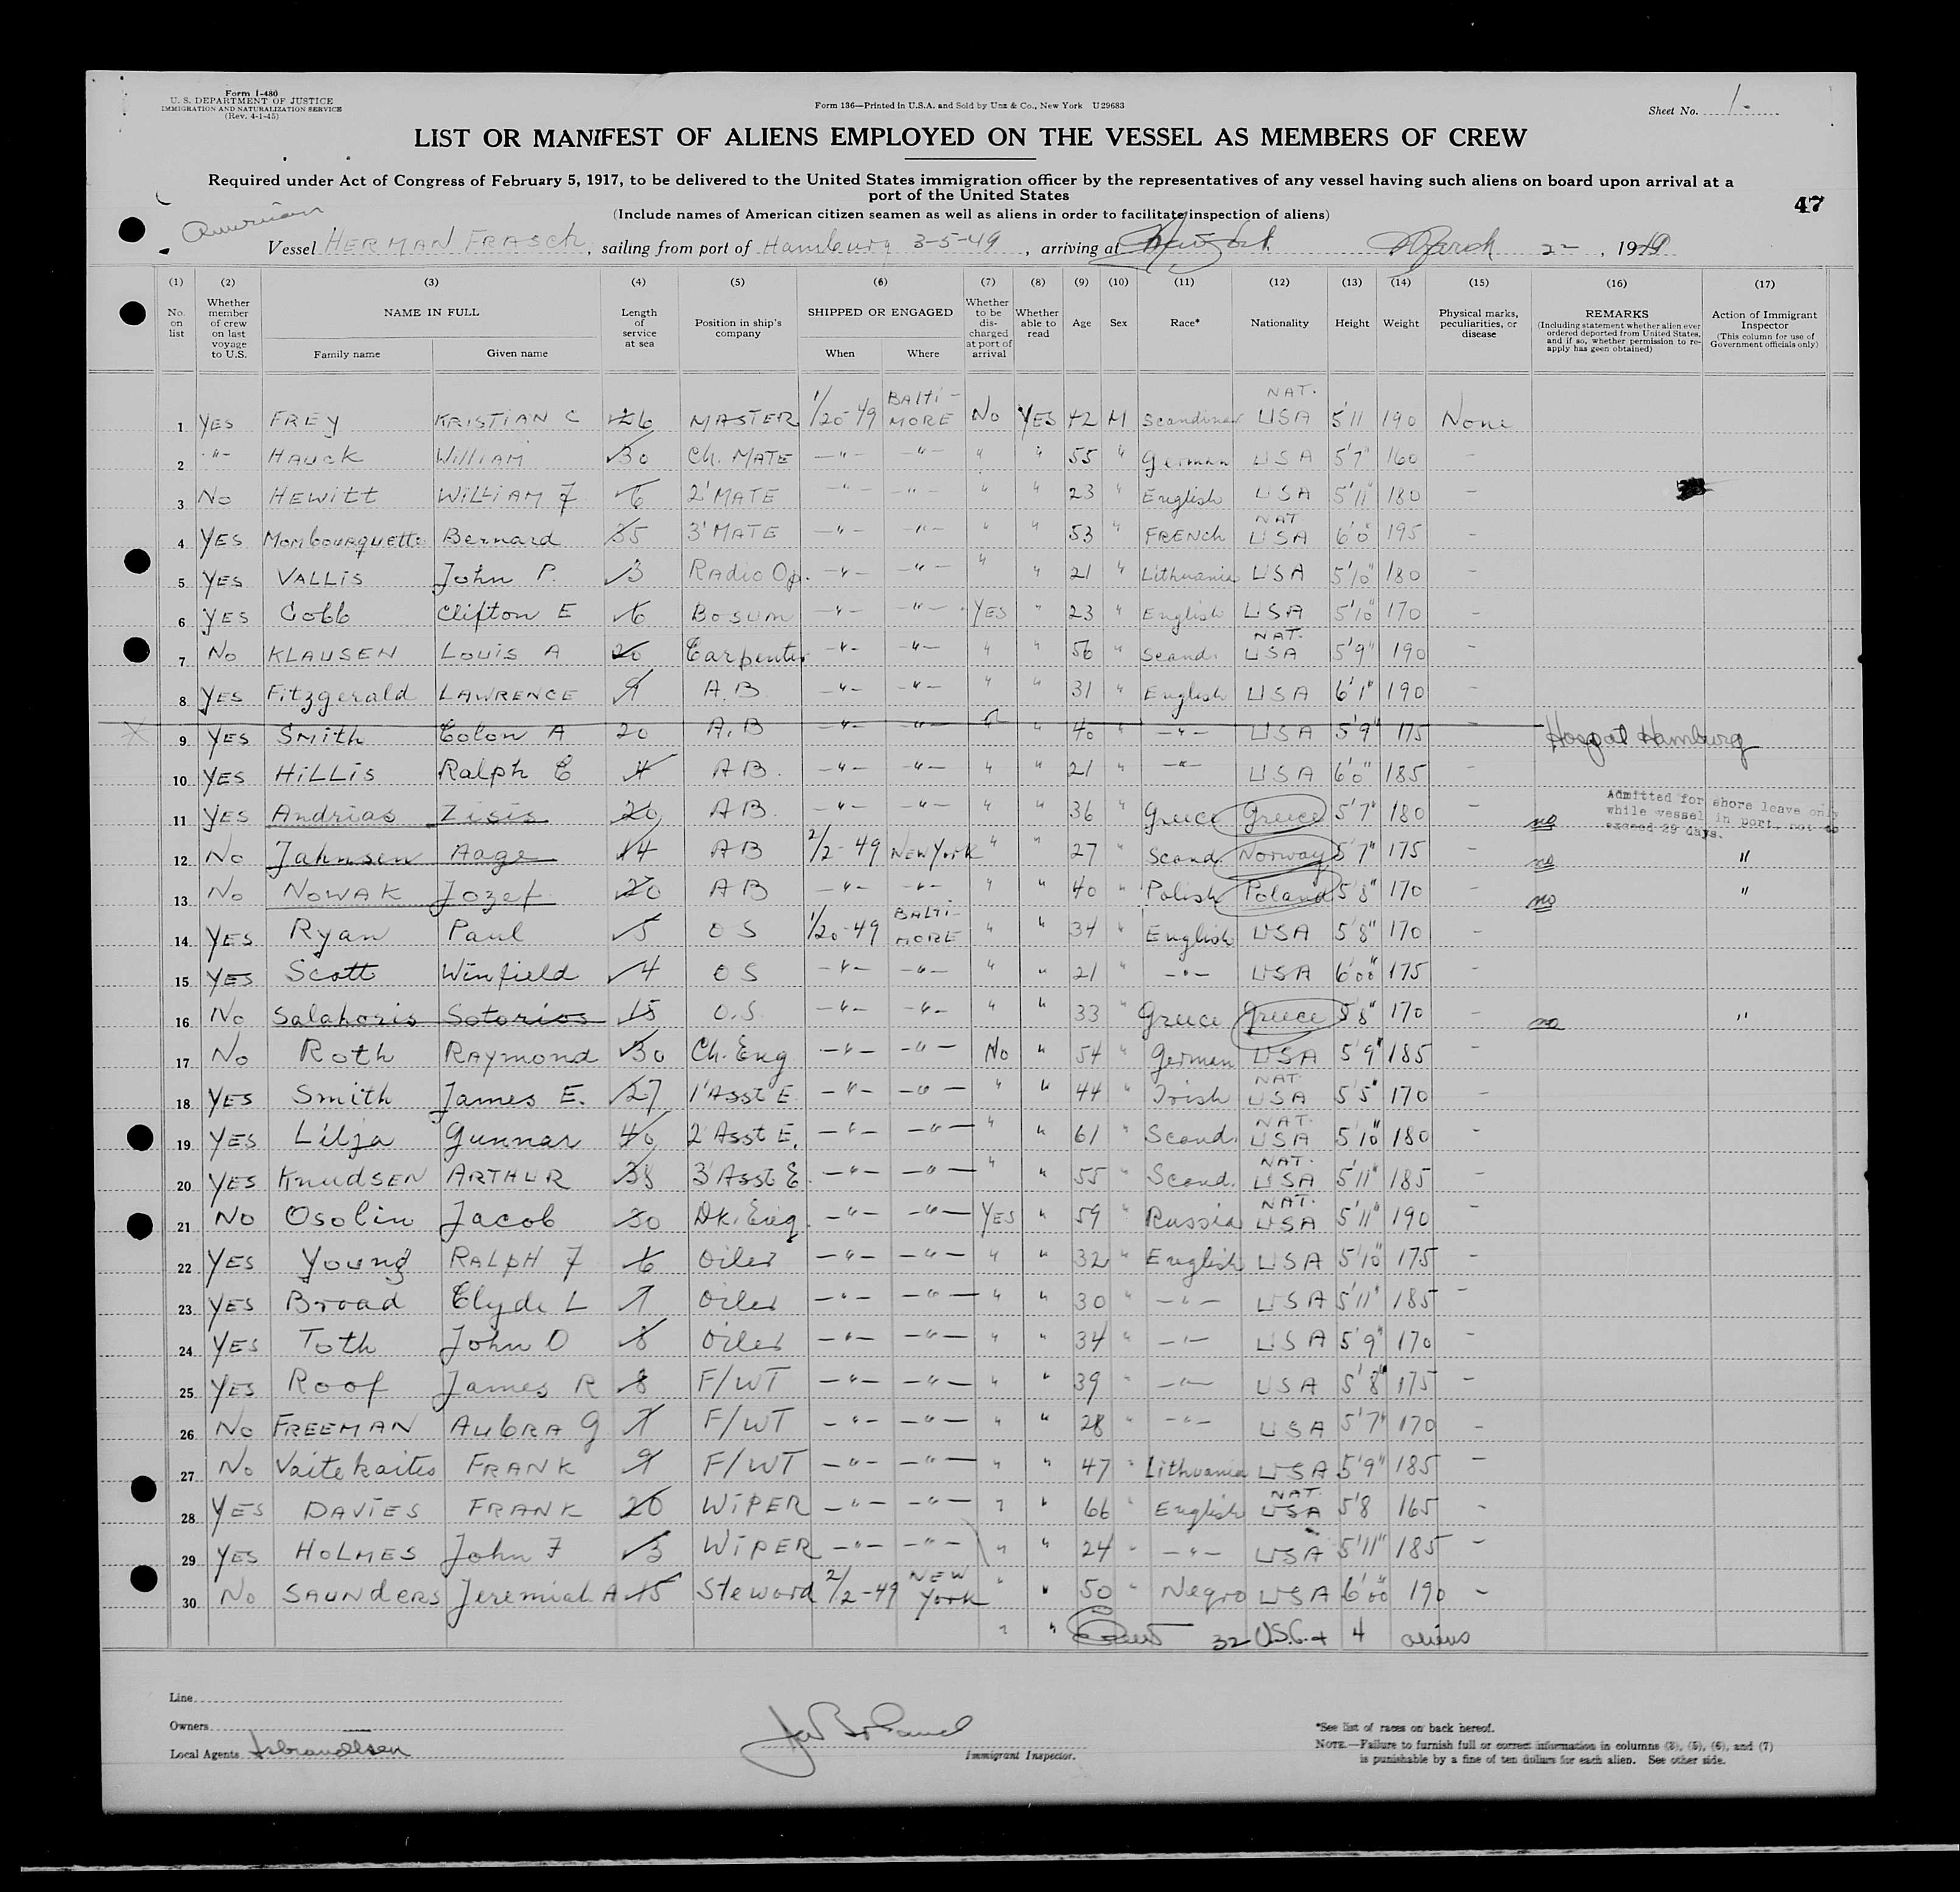 Form I-480
U. S. DEPARTMENT OF JUSTICE
IMMIGRATION AND NATURALIZATION SERVICE
(Rev. 4-1-45)
Form 136—Printed in U.S.A. and Sold by Unz & Co., New York U29683
Sheet No. 1.
LIST OR MANIFEST OF ALIENS EMPLOYED ON THE VESSEL AS MEMBERS OF CREW
Required under Act of Congress of February 5, 1917, to be delivered to the United States immigration officer by the representatives of any vessel having such aliens on board upon arrival at a
port of the United States
47
(Include names of American citizen seamen as well as aliens in order to facilitate inspection of aliens)
American
Vessel HERMAN FRASCH, sailing from port of Hamburg 3-5-49, arriving at New York March 22, 1949
(1) (2) (3) (4) (5) (6) (7) (8) (9) (10) (11) (12) (13) (14) (15) (16) (17)
No. on list
Whether member of crew on last voyage to U.S.
NAME IN FULL
Family name Given name
Length of service at sea
Position in ship's company
SHIPPED OR ENGAGED
When Where
Whether to be discharged at port of arrival
Whether able to read
Age Sex Race* Nationality Height Weight
Physical marks, peculiarities, or disease
REMARKS
(Including statement whether alien ever ordered deported from United States, and if so, whether permission to re-apply has geen obtained)
Action of Immigrant Inspector
(This column for use of Government officials only)
1 YES FREY KRISTIAN C 26 MASTER 1/20-49 BALTI-MORE No YES 42 M Scandinav NAT. USA 5'11 190 None
2 -"- HAUCK William 30 Ch. MATE -"- -"- " " 55 " German USA 5'7" 160 -
3 No HEWITT WILLIAM F 6 2'MATE -"- -"- " " 23 " English USA 5'11" 180 -
4 YES Mombourquette Bernard 35 3'MATE -"- -"- " " 53 " FRENCH NAT USA 6'0 195 -
5 YES VALLIS John P. 3 Radio Op. -"- -"- " " 21 " Lithuania USA 5'10" 180 -
6 YES Cobb Clifton E 6 Bosun -"- -"- YES " 23 " English USA 5'10" 170 -
7 No KLAUSEN Louis A 20 Carpenter -"- -"- " " 56 " Scand. NAT. USA 5'9" 190 -
8 YES Fitzgerald LAWRENCE 9 A.B. -"- -"- " " 31 " English USA 6'1" 190 -
9 YES Smith Colon A 20 A.B -"- -"- " " 40 " -"- USA 5'9" 175 - Hospat Hamburg
10 YES HILLIS Ralph C 4 AB. -"- -"- " " 21 " -"- USA 6'0" 185 -
11 YES Andrias Zisis 20 AB. -"- -"- " " 36 " Greece Greece 5'7" 180 - no Admitted for shore leave only while vessel in port, not to exceed 29 days.
12 No Jahnsen Aage 14 AB 2/2-49 NEW York " " 27 " Scand. Norway 5'7" 175 - no "
13 No NOWAK Jozef 20 AB -"- -"- " " 40 " Polish Poland 5'8" 170 - no "
14 YES Ryan Paul 5 OS 1/20-49 BALTI-MORE " " 34 " English USA 5'8" 170 -
15 YES Scott Winfield 4 OS -"- -"- " " 21 " -"- USA 6'00" 175 -
16 No Salahoris Sotorios 15 O.S. -"- -"- " " 33 " Greece Greece 5'8" 170 - no "
17 No Roth RAYMOND 30 Ch. Eng -"- -"- No " 54 " German USA 5'9" 185 -
18 YES Smith James E. 27 1'Asst E. -"- -"- " " 44 " Irish NAT USA 5'5" 170 -
19 YES Lilja Gunnar 40 2'Asst E. -"- -"- " " 61 " Scand. NAT. USA 5'10" 180 -
20 YES KNUDSEN ARTHUR 38 3'Asst E -"- -"- " " 55 " Scand. NAT. USA 5'11" 185 -
21 No Osolin Jacob 30 Dk. Eng. -"- -"- YES " 59 " Russia NAT. USA 5'11" 190 -
22 YES Young RALPH F 6 Oiler -"- -"- " " 32 " English USA 5'10" 175 -
23 YES Broad Clyde L 7 Oiler -"- -"- " " 30 " -"- USA 5'11" 185 -
24 YES Toth John D 8 Oiler -"- -"- " " 34 " -"- USA 5'9" 170 -
25 YES Roof James R 8 F/WT -"- -"- " " 39 " -"- USA 5'8" 175 -
26 No FREEMAN AUBRA G 7 F/WT -"- -"- " " 28 " -"- USA 5'7" 170 -
27 No Vaitekaites FRANK 9 F/WT -"- -"- " " 47 " Lithuania USA 5'9" 185 -
28 YES DAVIES FRANK 20 WIPER -"- -"- " " 66 " English NAT. USA 5'8 165 -
29 YES HOLMES John F 3 WIPER -"- -"- " " 24 " -"- USA 5'11" 185 -
30 No SAUNDERS Jeremiah A 15 Steward 2/2-49 NEW York " " 50 " Negro USA 6'00" 190 -
" " 32 U.S.C. + 4 aliens
Line
Owners
Local Agents Isbrandtsen
Immigrant Inspector.
*See list of races on back hereof.
NOTE.—Failure to furnish full or correct information in columns (3), (5), (6), and (7)
is punishable by a fine of ten dollars for each alien. See other side.